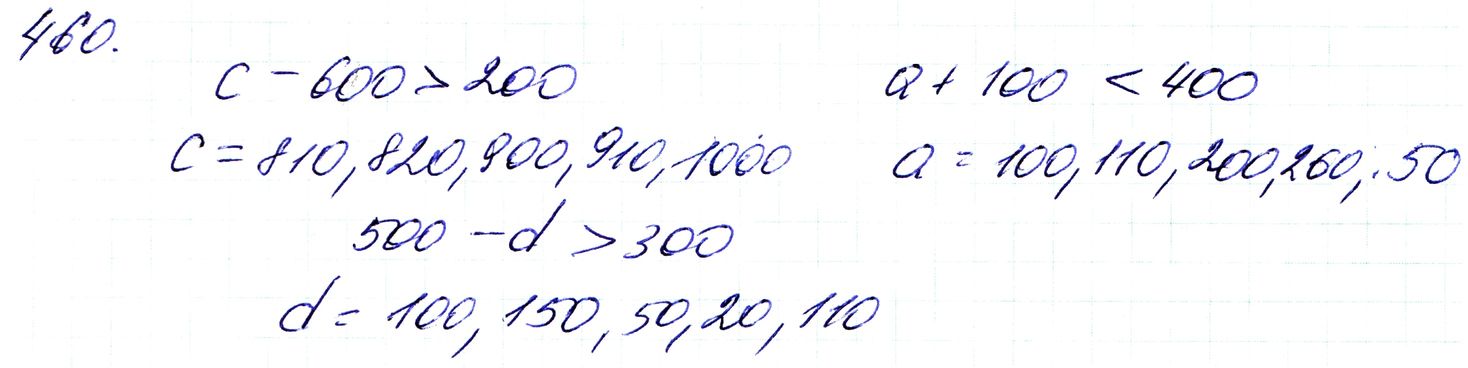 460.
c - 600 > 200 a + 100 < 400
c = 810, 820, 900, 910, 1000 a = 100, 110, 200, 260, 50
500 - d > 300
d = 100, 150, 50, 20, 110